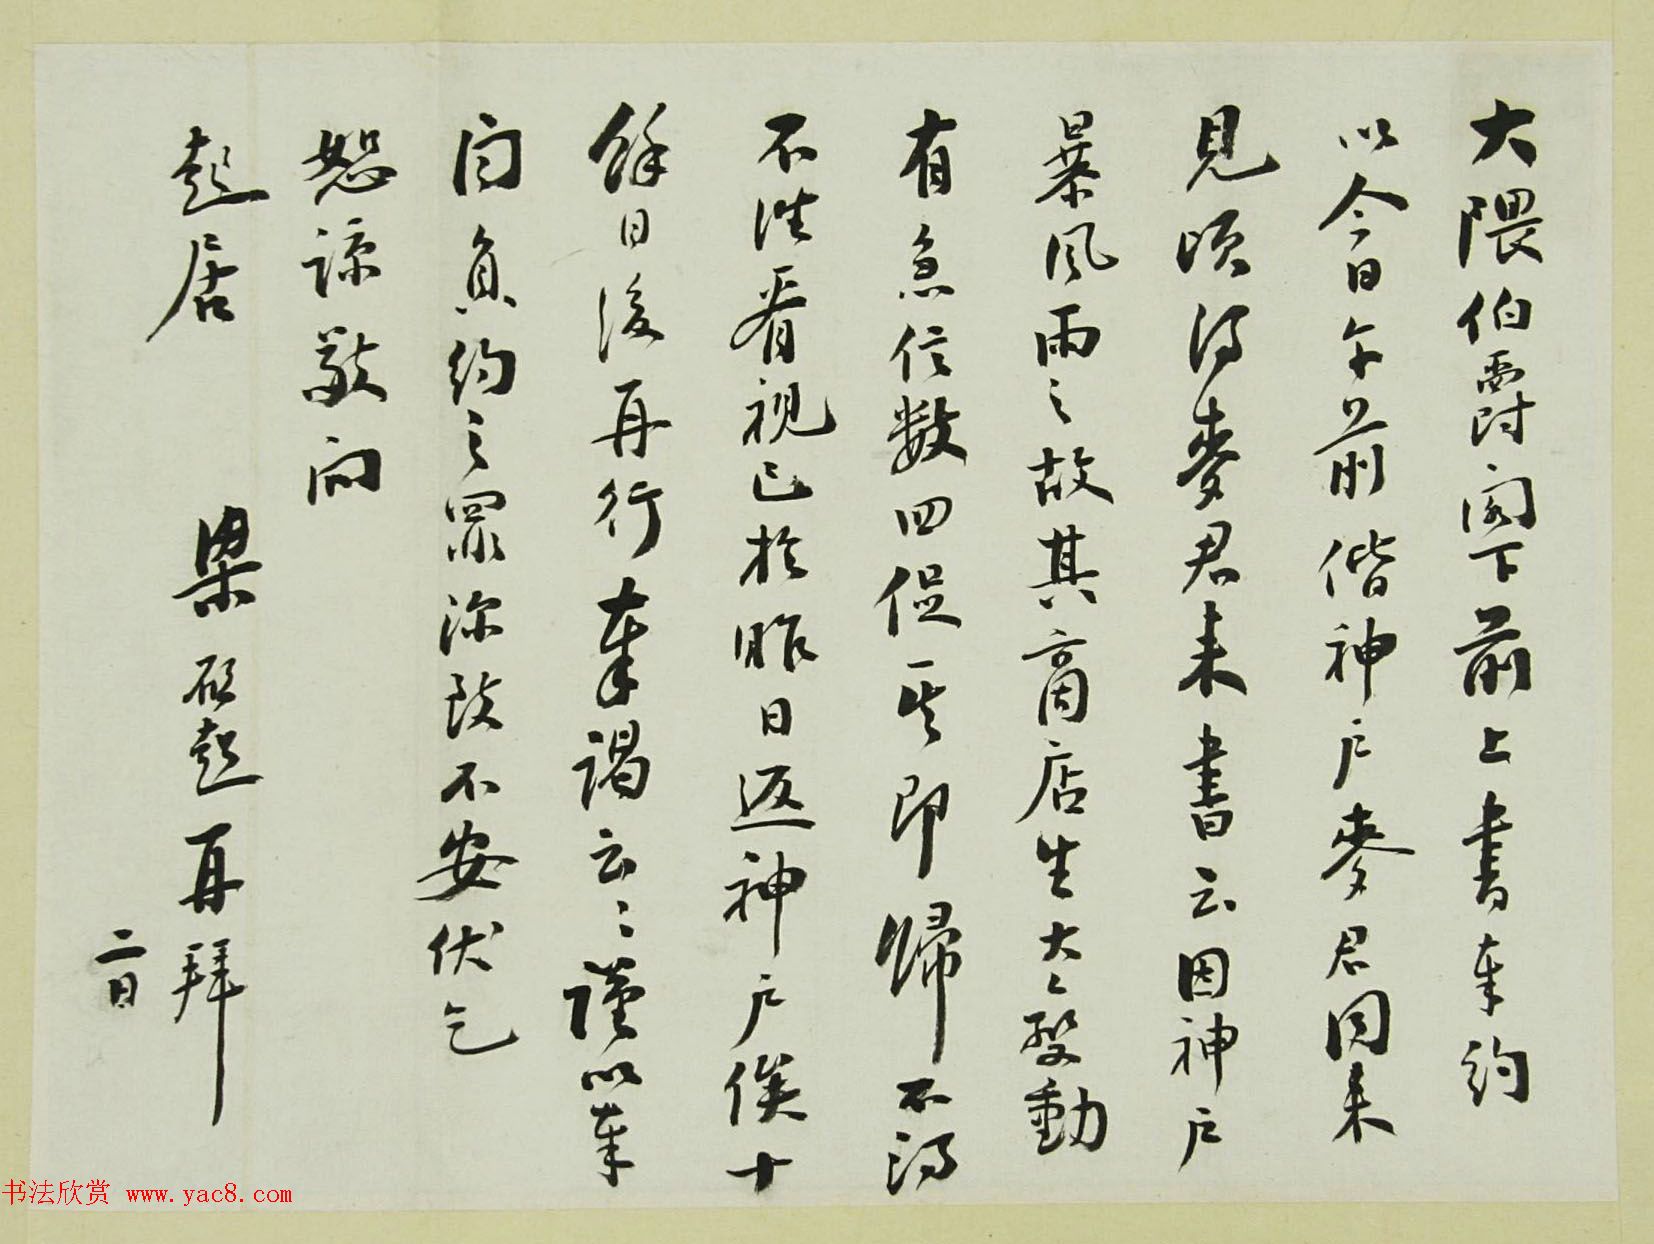 大隈伯爵閣下前上書奉約
以今日午前偕神戶麥君同來
見頃得麥君來書云因神戶
暴風雨之故其商店生大大變動
有急信數四促其即歸不得
不往看視已於昨日返神戶俟十
餘日後再行奉謁云云謹以奉
聞負約之罪深致不安伏乞
恕諒敬問
起居
梁啟超再拜
二日
书法欣赏 www.yac8.com